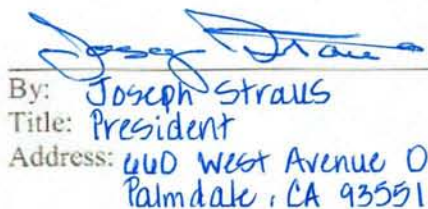 By: Joseph Straus
Title: President
Address: 440 West Avenue O
Palmdale, CA 93551